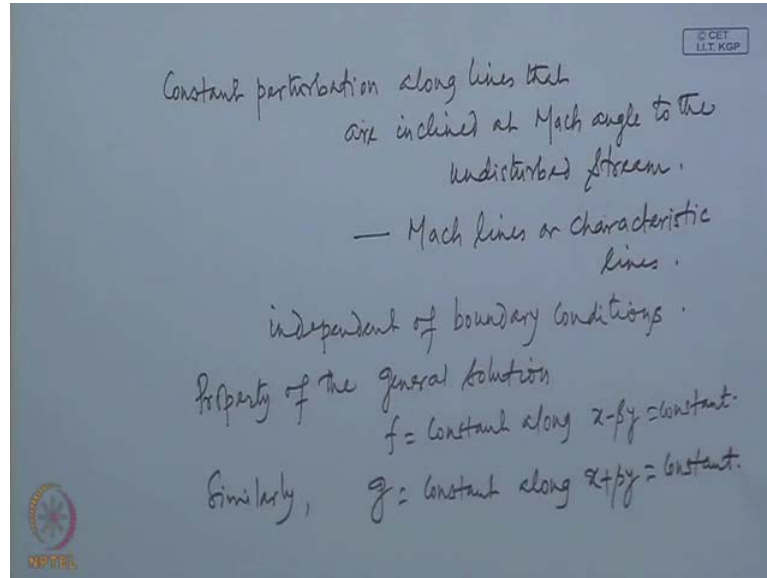 © CET
I.I.T. KGP
Constant perturbation along lines that
are inclined at Mach angle to the
undisturbed stream.
— Mach lines or characteristic
lines.
independent of boundary conditions.
Property of the general solution
f = constant along x-βy = constant.
Similarly, g = constant along x+βy = constant.
NPTEL